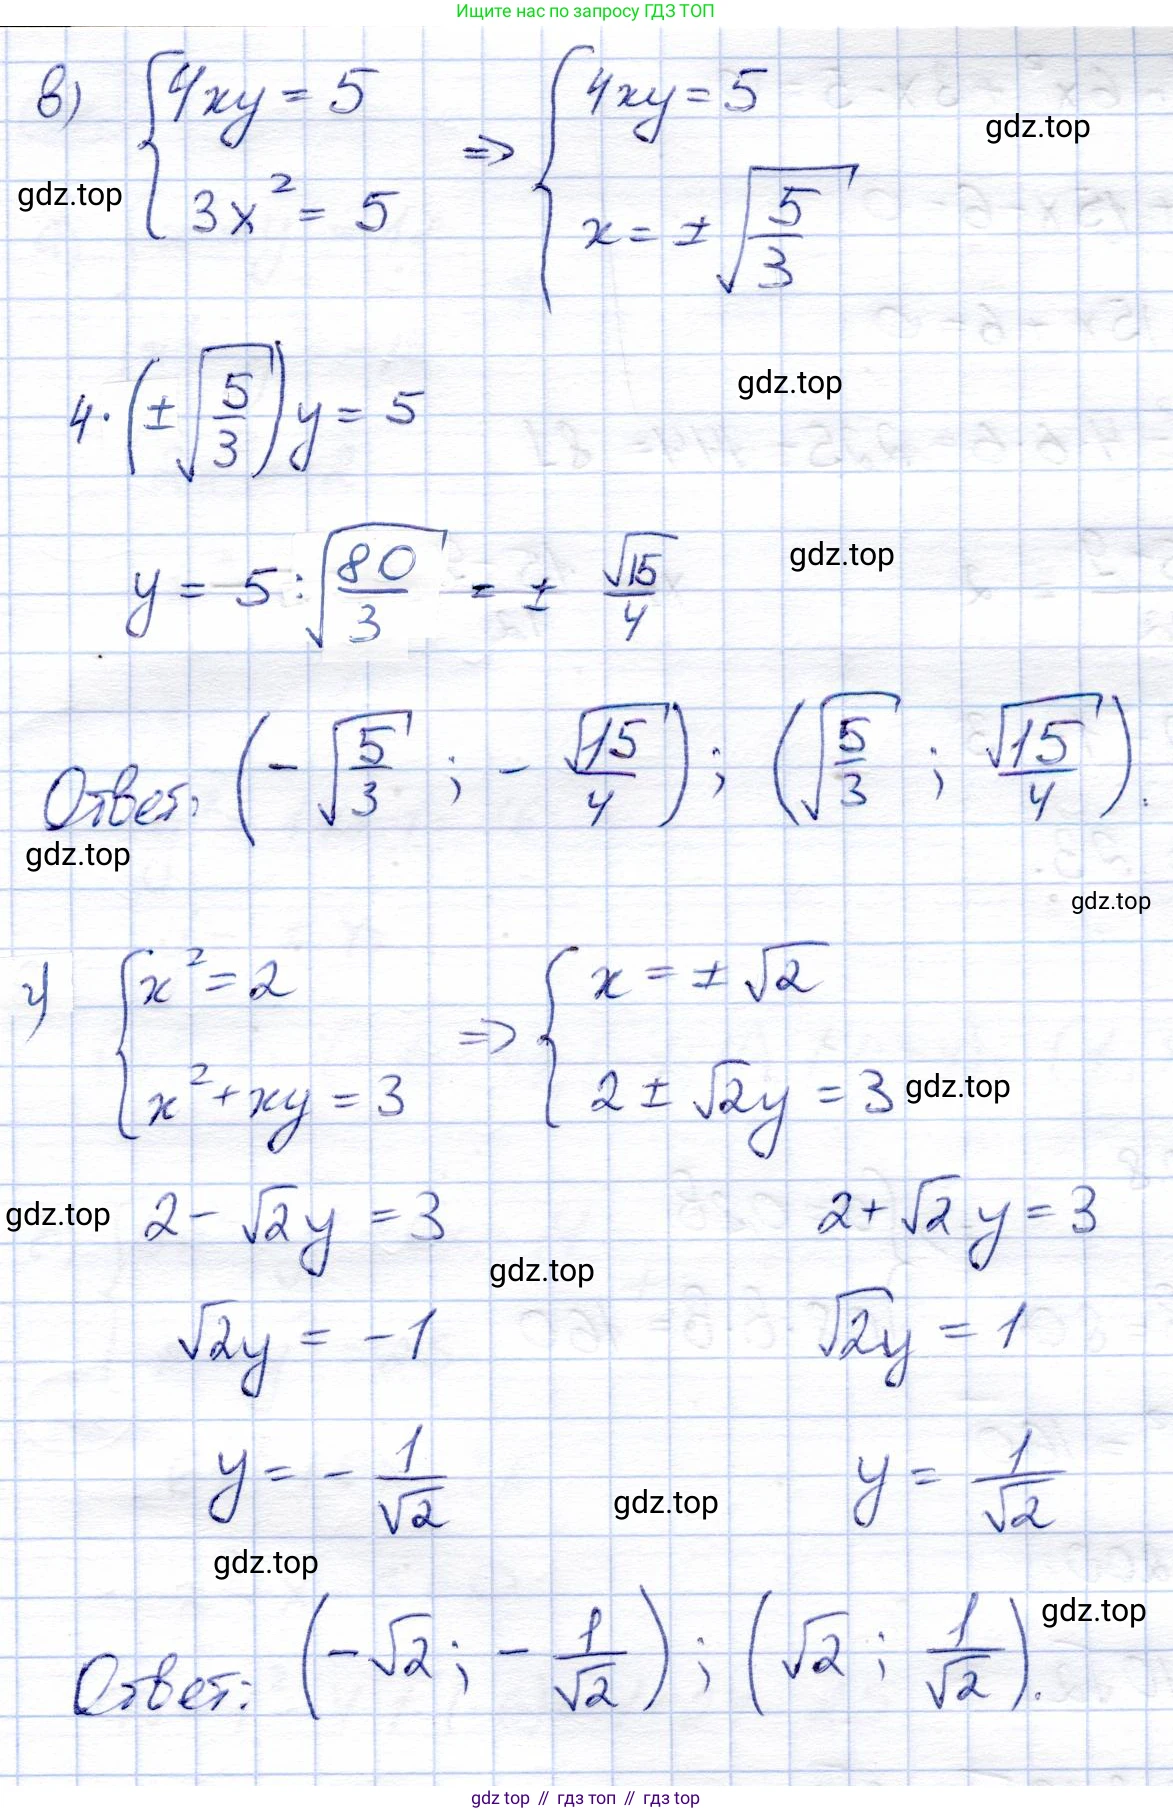 Ищите нас по запросу ГДЗ ТОП
в) { 4xy = 5 => { 4xy = 5
gdz.top
3x² = 5 x = ± √(5/3)
gdz.top
4 · (± √(5/3)) y = 5
gdz.top
y = 5 : √(80/3) = ± √15/4
gdz.top
Ответ: (- √(5/3) ; - √15/4) ; (√(5/3) ; √15/4).
gdz.top
gdz.top
г) { x² = 2 => { x = ± √2
x² + xy = 3 2 ± √2y = 3
gdz.top
gdz.top
2 - √2y = 3 2 + √2y = 3
gdz.top
√2y = -1 √2y = 1
y = - 1/√2 y = 1/√2
gdz.top
gdz.top
gdz.top
Ответ: (-√2 ; - 1/√2) ; (√2 ; 1/√2).
gdz top // гдз топ // гдз top